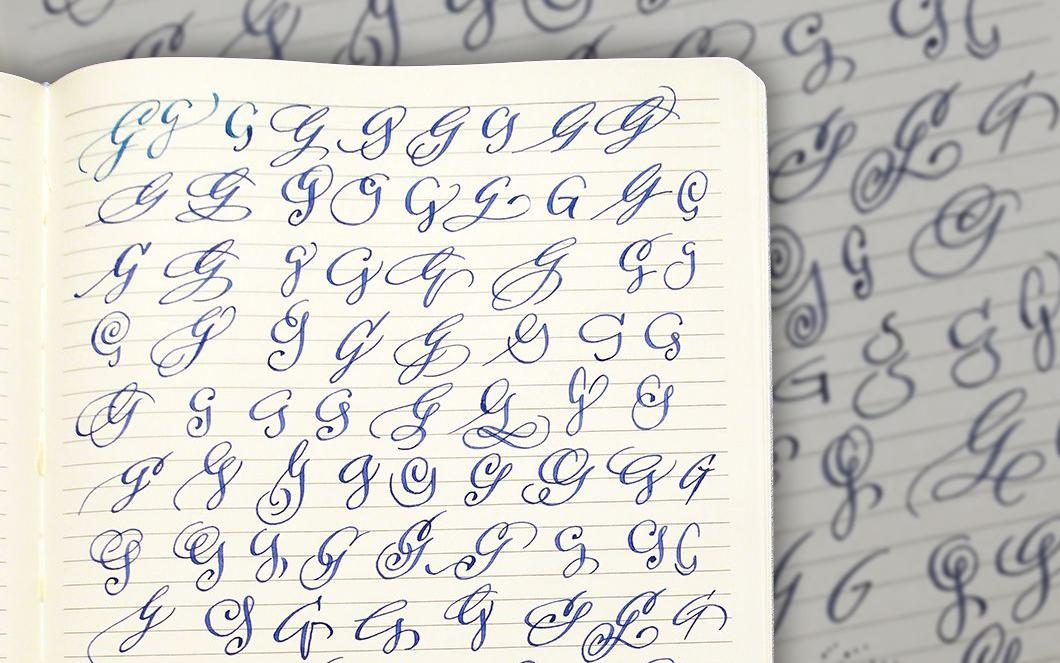 G G G G G G G G G
G G G G G G G G G
G G G G G G G G
G G G G G G G G
G G G G G G G G
G G G G G G G G G
G G G G G G G G G
G G G G G G G G